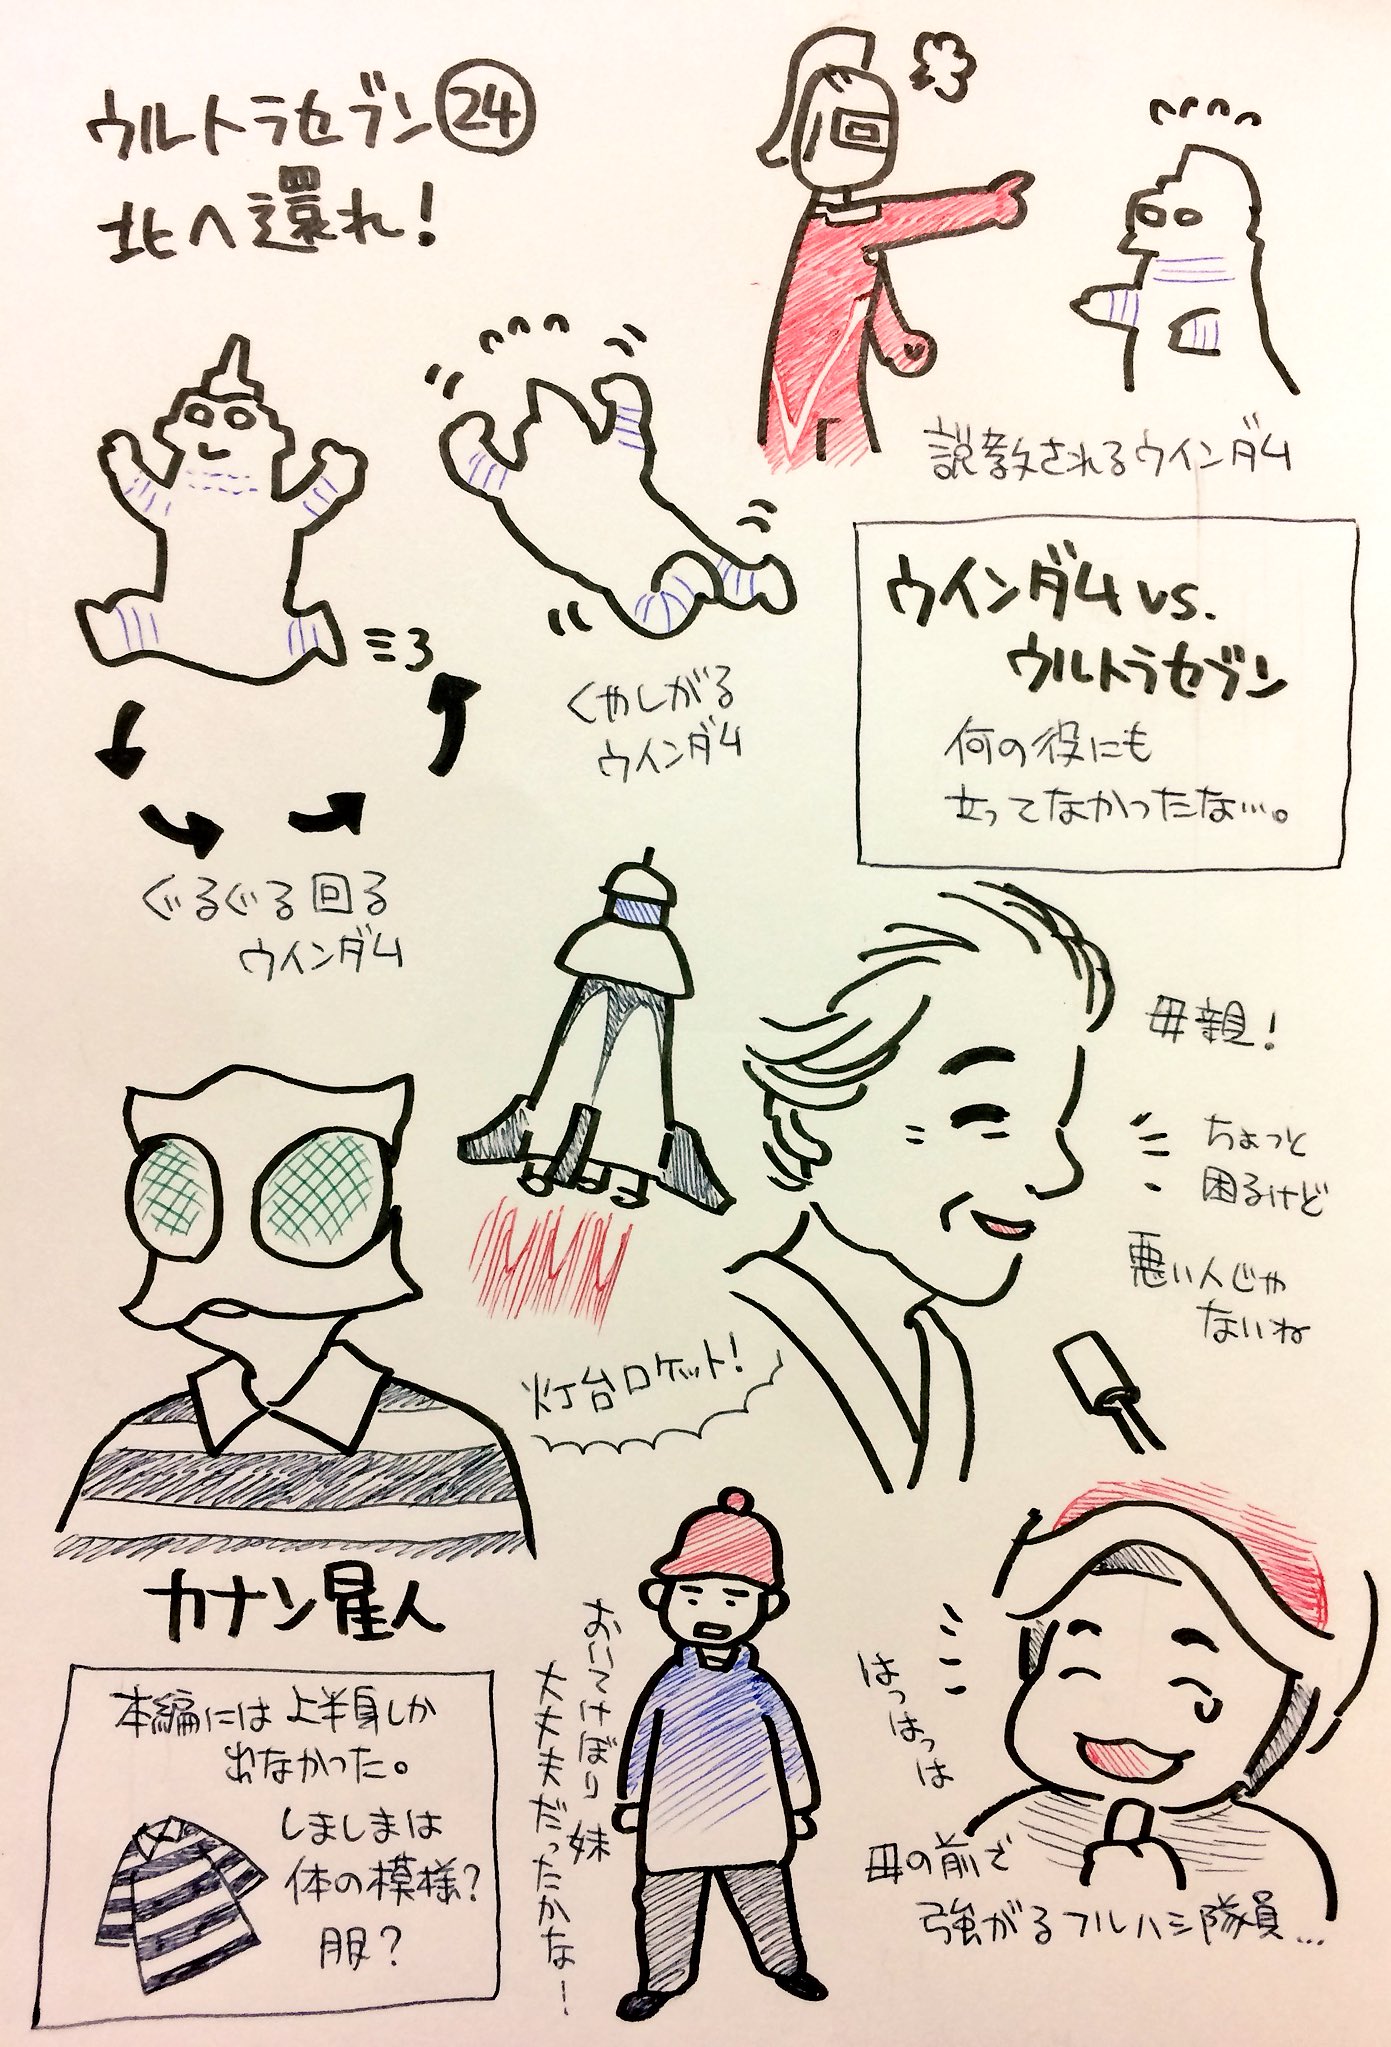 ウルトラセブン㉔
北へ還れ!
説教されるウインダム
くやしがる
ウインダム
ウインダムvs.
ウルトラセブン
何の役にも
立ってなかったな…。
ぐるぐる回る
ウインダム
母親!
ちょっと
困るけど
悪い人じゃ
ないね
灯台ロケット!
カナン星人
本編には上半身しか
出なかった。
しましまは
体の模様?
服?
おいてけぼり妹
大丈夫だったかな〜!
はっはっは
母の前で
強がるフルハシ隊員…